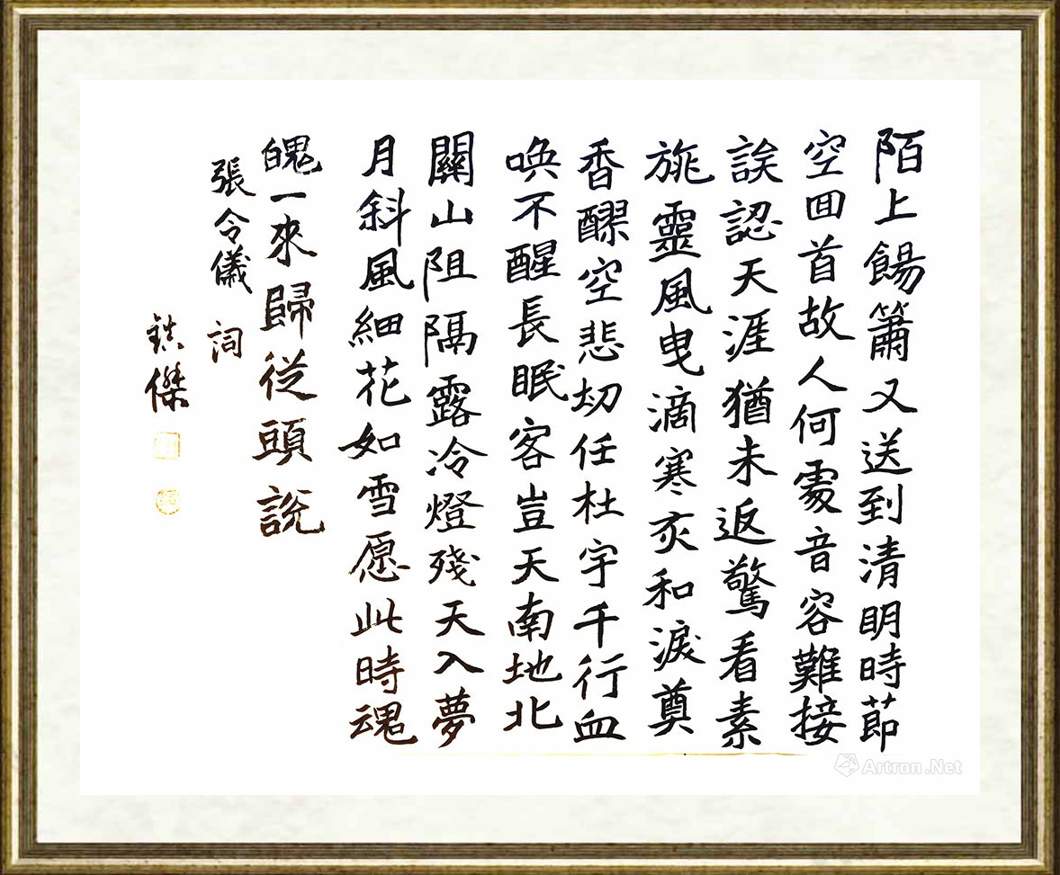 陌上餳簫又送到清明時節
空囬首故人何處音容難接
誒認天涯猶未返驚看素
旐靈風曳滴寒灰和淚奠
香醪空悲切任杜宇千行血
喚不醒長眠客豈天南地北
關山阻隔露冷燈殘天入夢
月斜風細花如雪愿此時魂
魄一來歸從頭說
張令儀 詞
鉄傑
Artron.Net